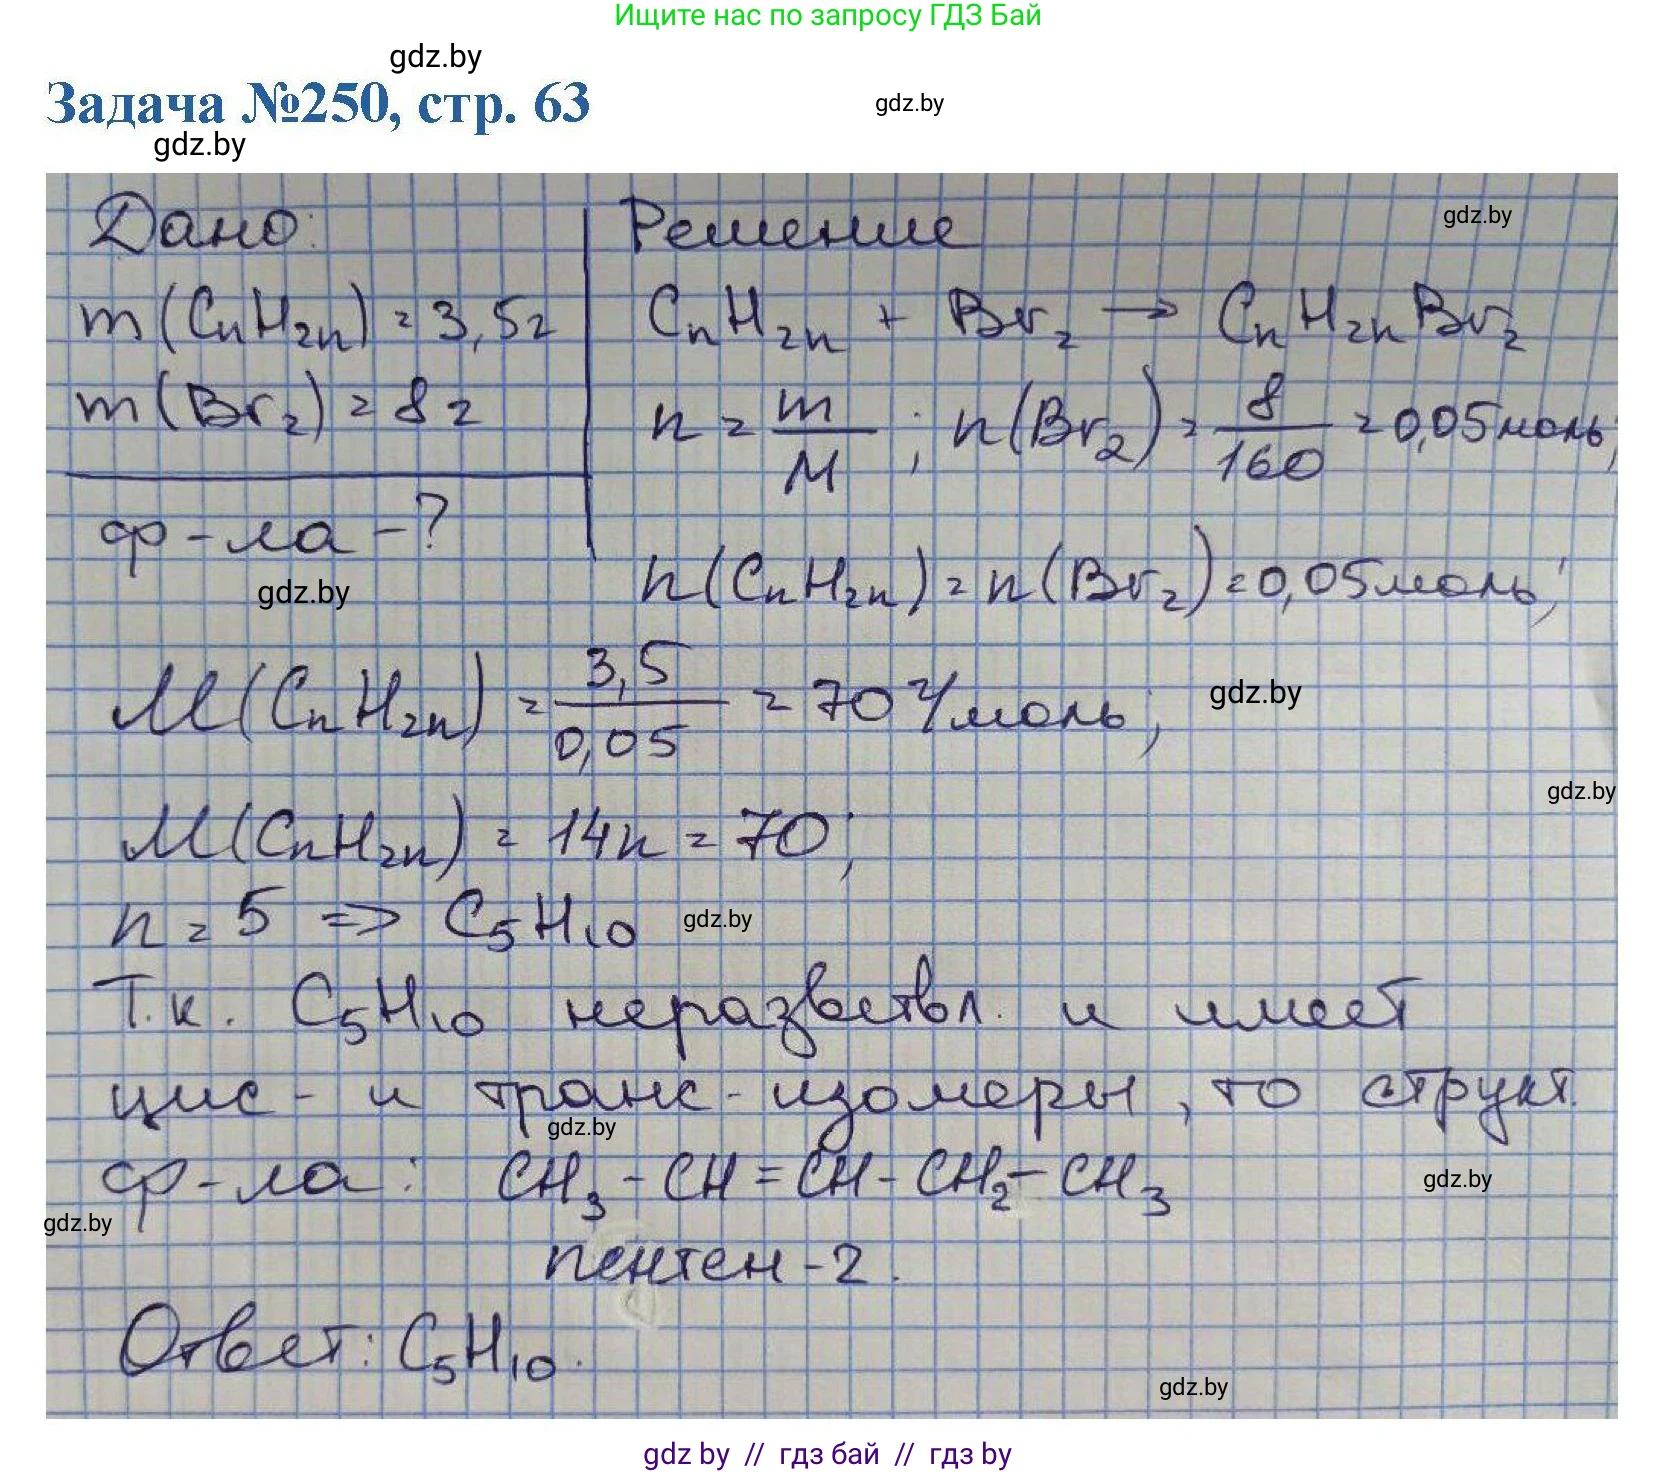 Ищите нас по запросу ГДЗ Бай
gdz.by
Задача №250, стр. 63
gdz.by
gdz.by
Дано:
Решение
gdz.by
m(CnH2n) = 3,5г
CnH2n + Br2 → CnH2nBr2
m(Br2) = 8г
n = m/M ; n(Br2) = 8/160 = 0,05моль;
ф-ла - ?
gdz.by
n(CnH2n) = n(Br2) = 0,05моль;
M(CnH2n) = 3,5/0,05 = 70 г/моль;
gdz.by
gdz.by
M(CnH2n) = 14n = 70;
n = 5 => C5H10
gdz.by
Т.к. C5H10 неразветвл. и имеет
цис- и транс-изомеры, то структ.
gdz.by
ф-ла: CH3-CH=CH-CH2-CH3
gdz.by
gdz.by
пентен-2.
Ответ: C5H10.
gdz.by
gdz by // гдз бай // гдз by